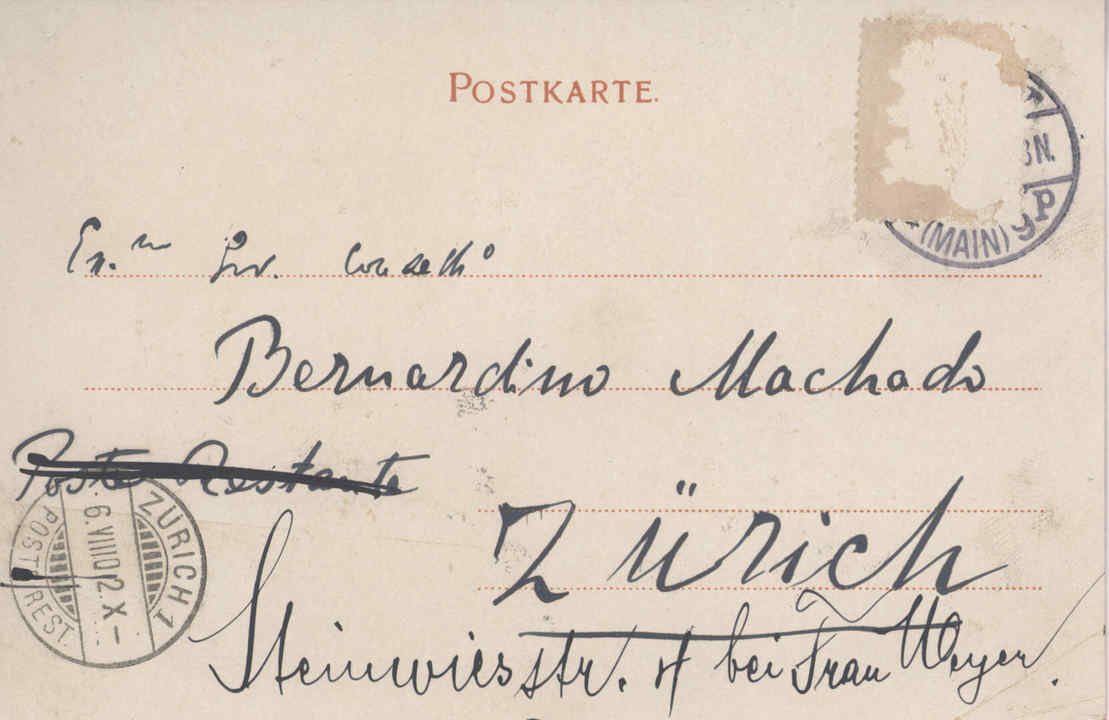 POSTKARTE.
(MAIN) 9
P
BN.
Ex.mo Snr. Conselho
Bernardino Machado
Poste Restante
Zürich
ZÜRICH 1
6.VIII.02 X-
POST REST.
Steinwiesstr. 4 bei Frau Meyer.